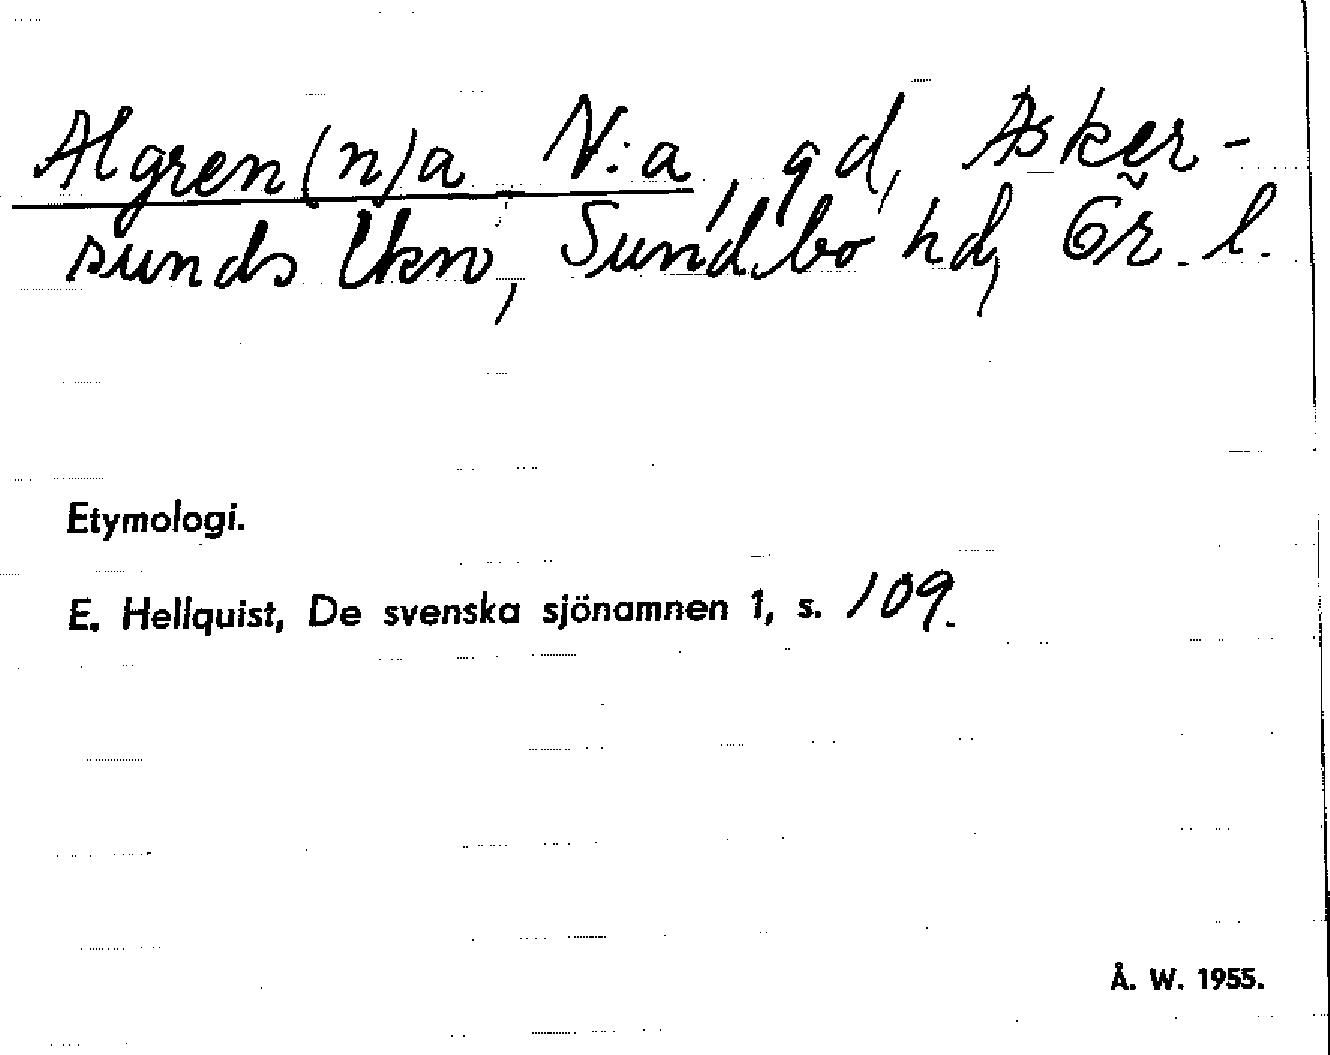 Algren(n)a, N:a, gd, Asker-
sunds lkn, Sundbo hd, Ör. l.
Etymologi.
E. Hellquist, De svenska sjönamnen 1, s. 109.
Å. W. 1955.